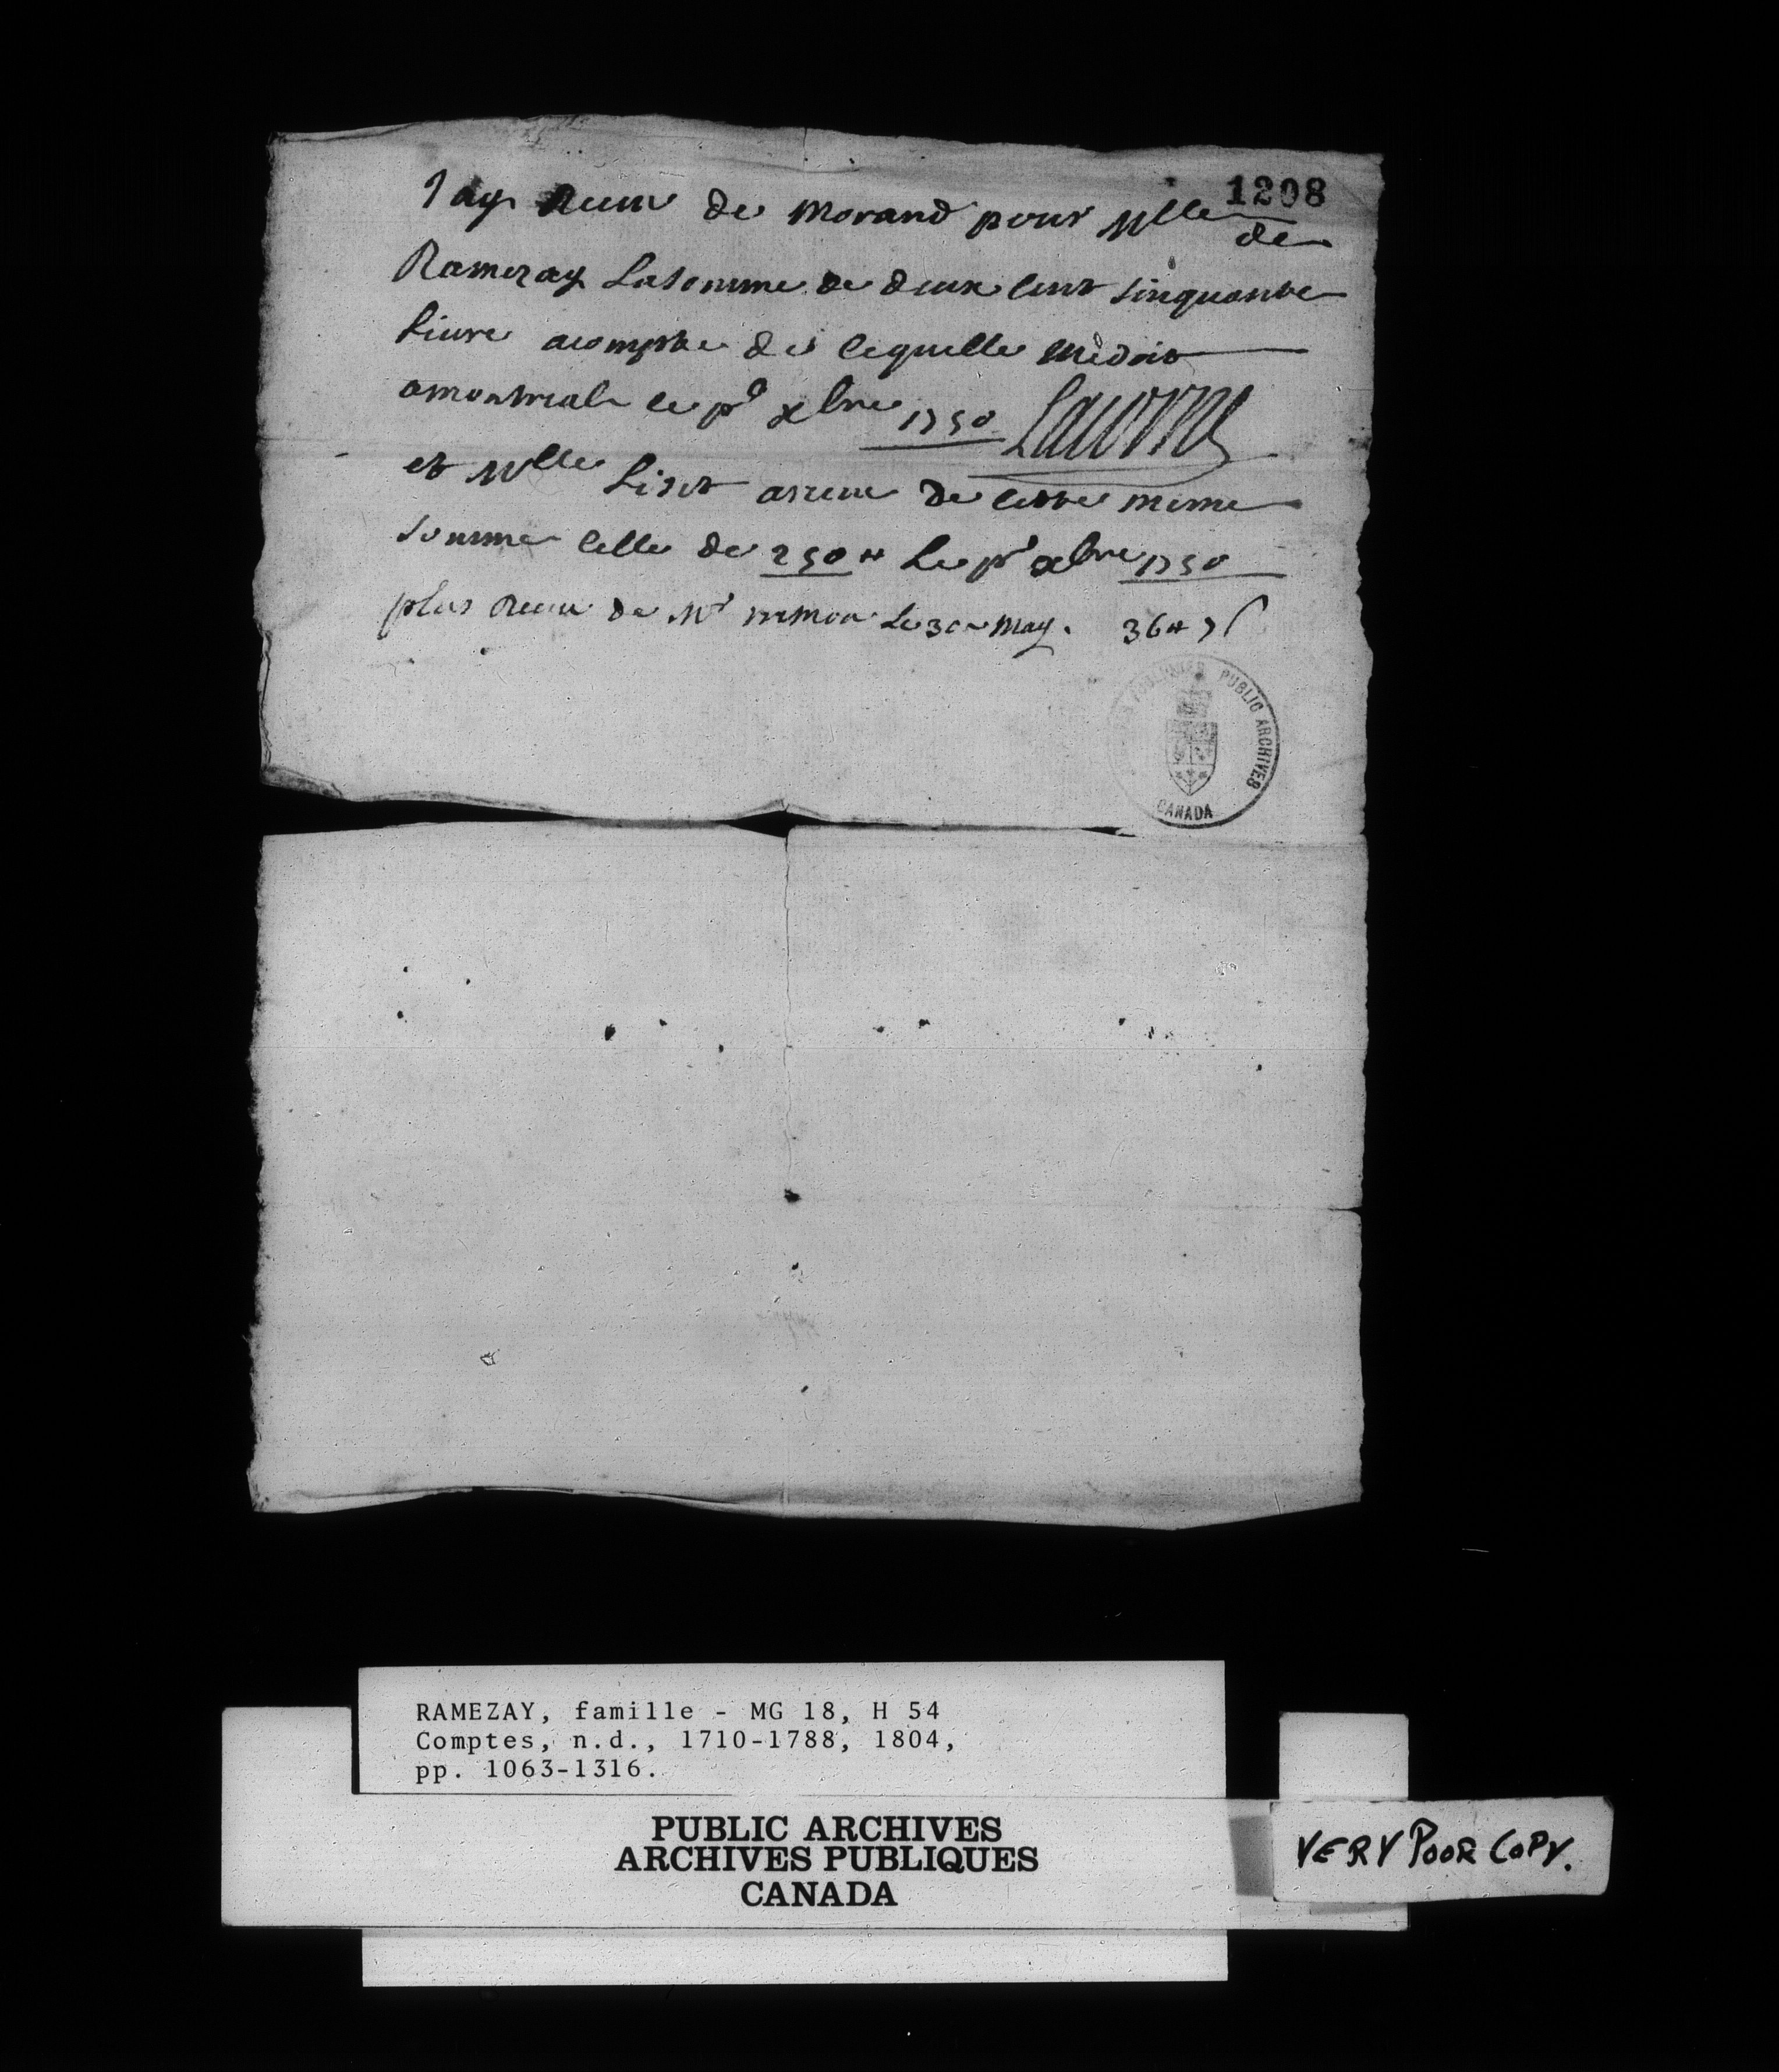 1208
Jay Receu de Morand pour Mlle de
Ramezay La somme de deux cent sinquante
Livre acompte de lequelle me doit
a montreal le pr xbre 1750 Lacorne
et Mlle Liset a receu de cette meme
somme celle de 250 ₶ Le pr xbre 1750
plus Receu de Mr Le 30 May. 36 ₶
PUBLIC ARCHIVES
CANADA
RAMEZAY, famille - MG 18, H 54
Comptes, n.d., 1710-1788, 1804,
pp. 1063-1316.
PUBLIC ARCHIVES
ARCHIVES PUBLIQUES
CANADA
VERY POOR COPY.